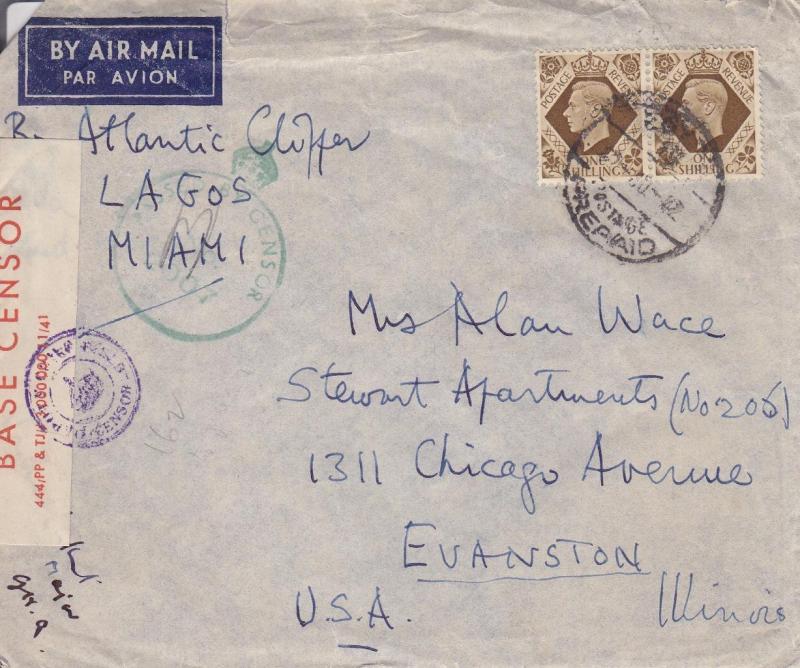 BY AIR MAIL
PAR AVION
POSTAGE REVENUE
ONE
SHILLING
POSTAGE REVENUE
ONE
SHILLING
POSTAGE
PREPAID
R. Atlantic Clipper
LAGOS
MIAMI
CENSOR
BASE CENSOR
444/PP & TJ/
11/41
CENSOR
Mrs Alan Wace
Stewart Apartments (No 206)
1311 Chicago Avenue
EVANSTON
U.S.A. Illinois
162
Major